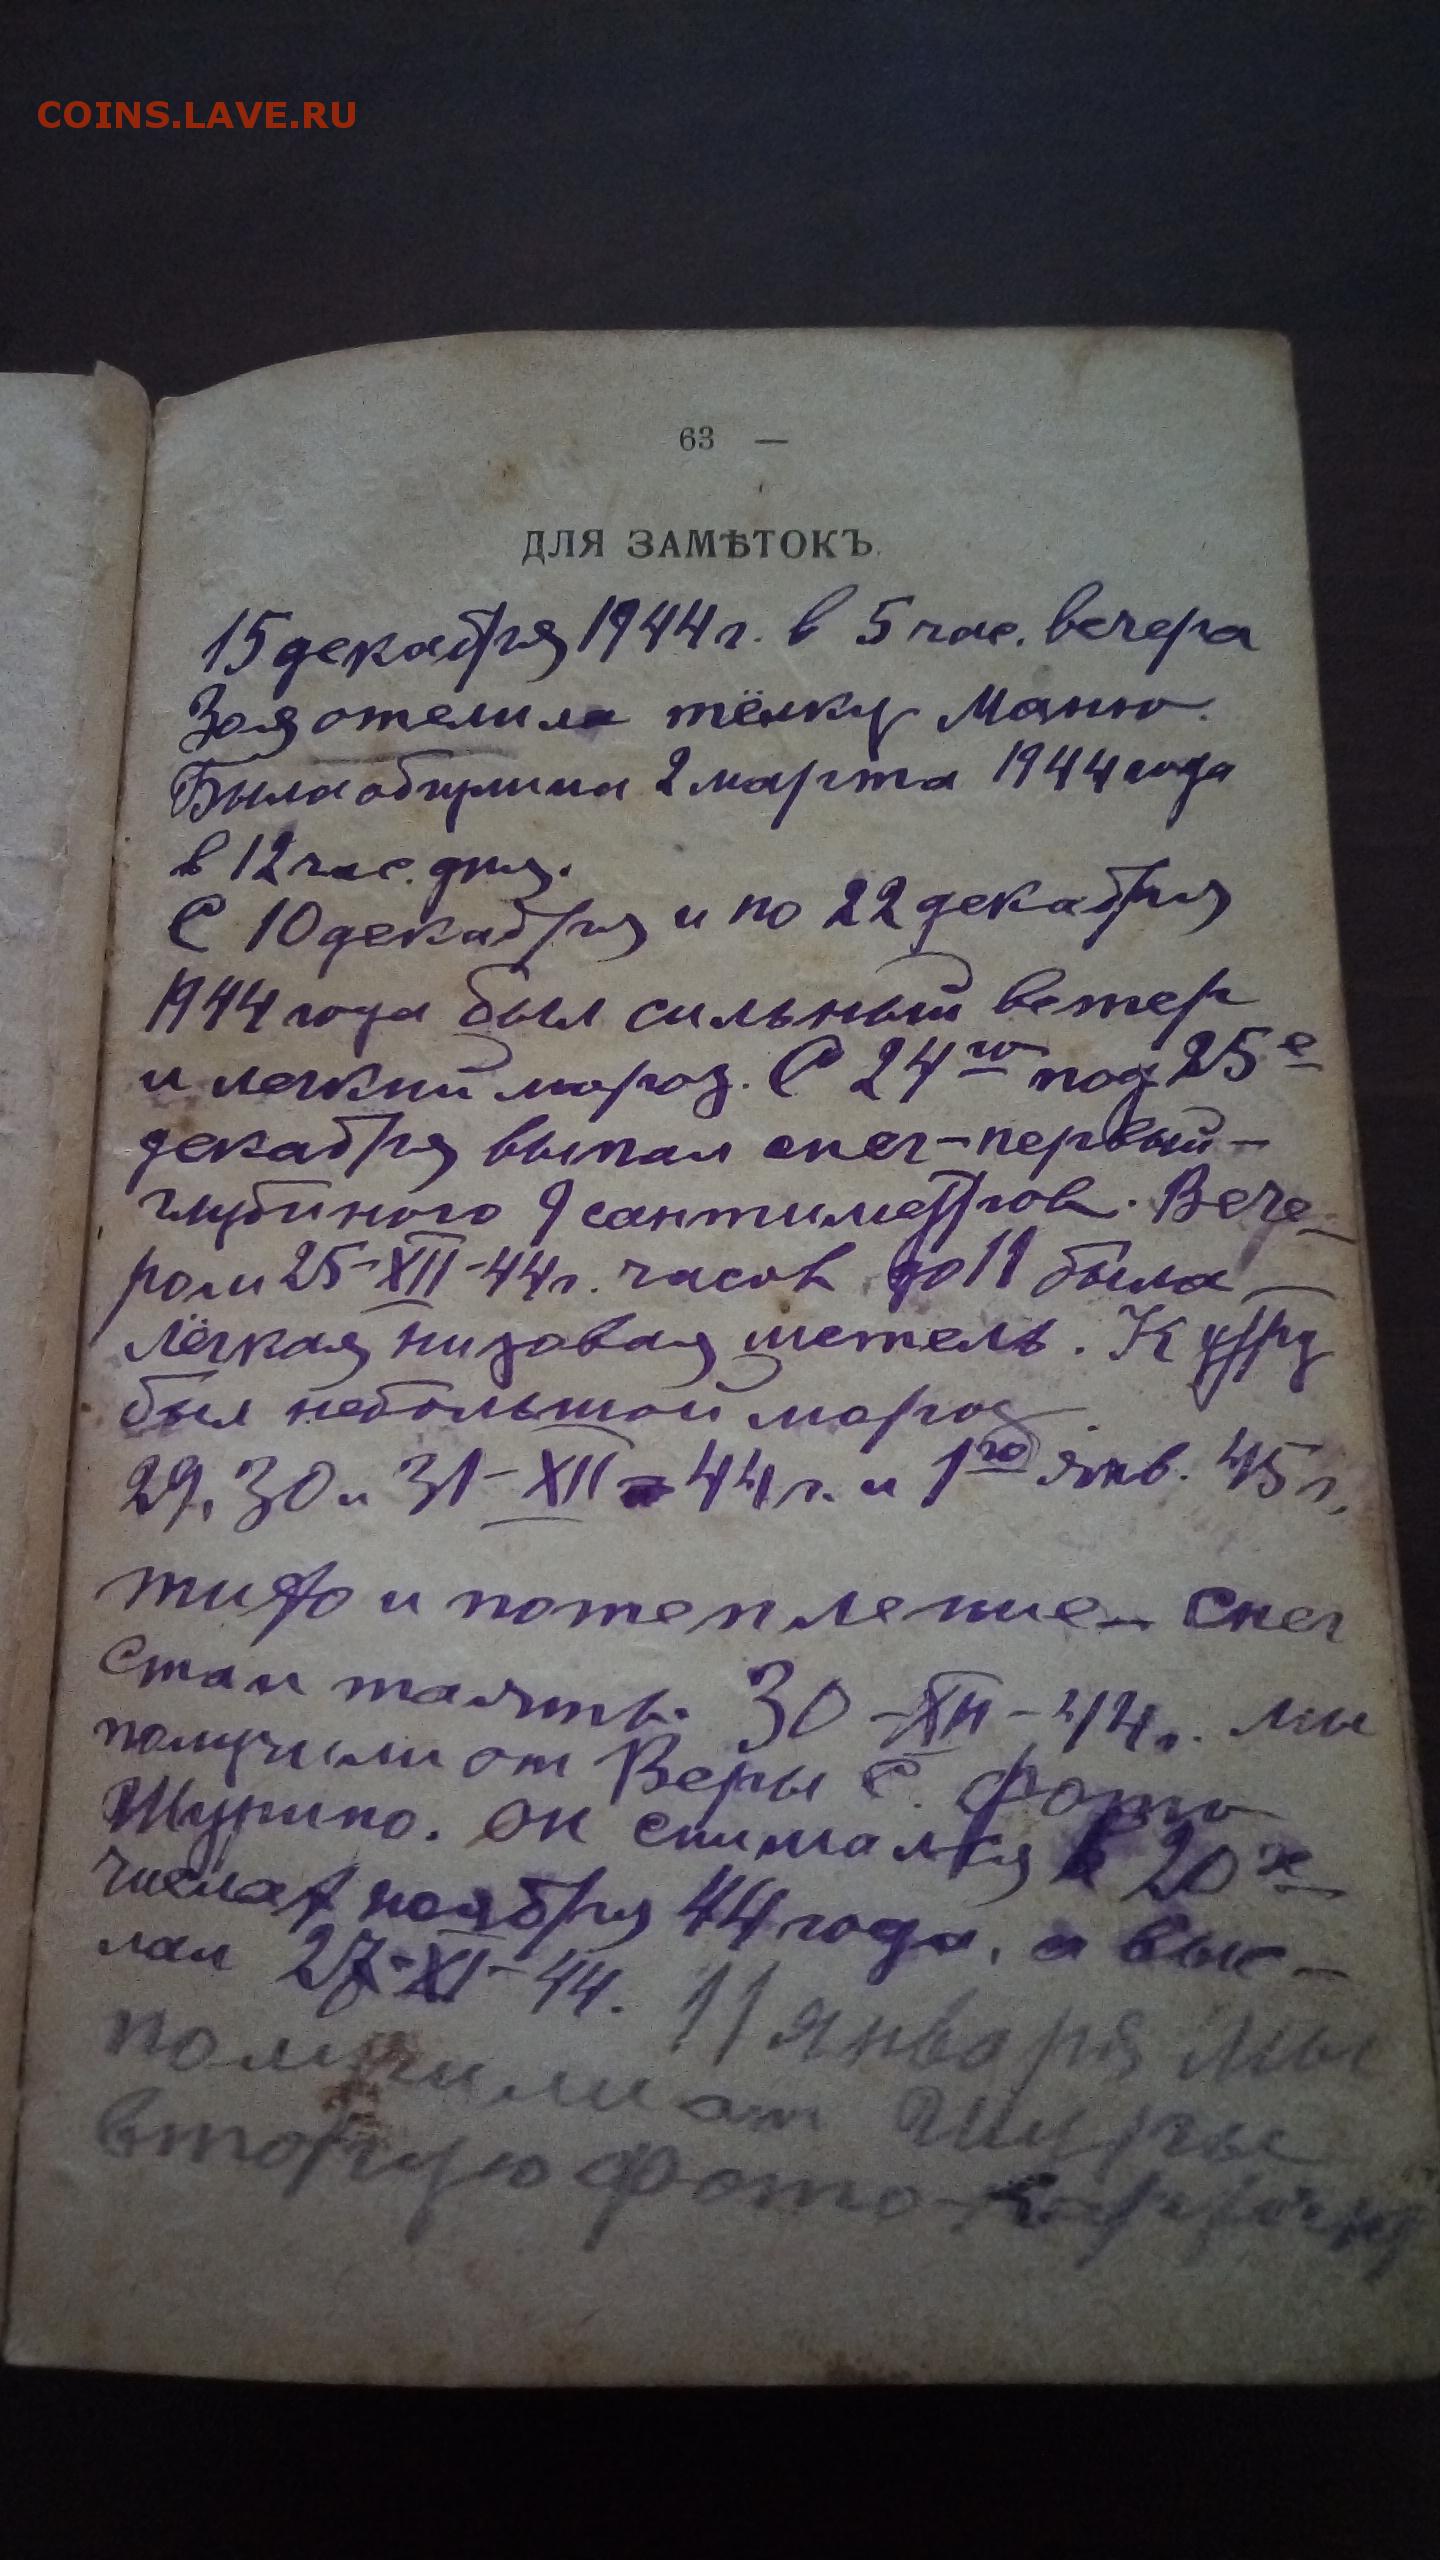 COINS.LAVE.RU
63 —
ДЛЯ ЗАМѢТОКЪ.
15 декабря 1944 г. в 5 час. вечера
Зоя отелила тёлку Маню.
Была 2 марта 1944 года
в 12 час. дня.
С 10 декабря и по 22 декабря
1944 года был сильный ветер
и легкий мороз. С 24го под 25е
декабря выпал снег – первый –
глубиною 9 сантиметров. Вече-
ром 25-XII-44 г. часов до 11 была
лёгкая низовая метель. К утру
был небольшой мороз.
29, 30 и 31-XII-44 г. и 1го янв. 45 г.
тихо и потепление – снег
стал таять. 30-XII-44 г. мы
получили от Веры С. фото
Шурино. Он снимался в 20х
числах ноября 44 года, а выс-
лал 27-XI-44. 11 января мы
получили от Шуры
вторую фото-карточку